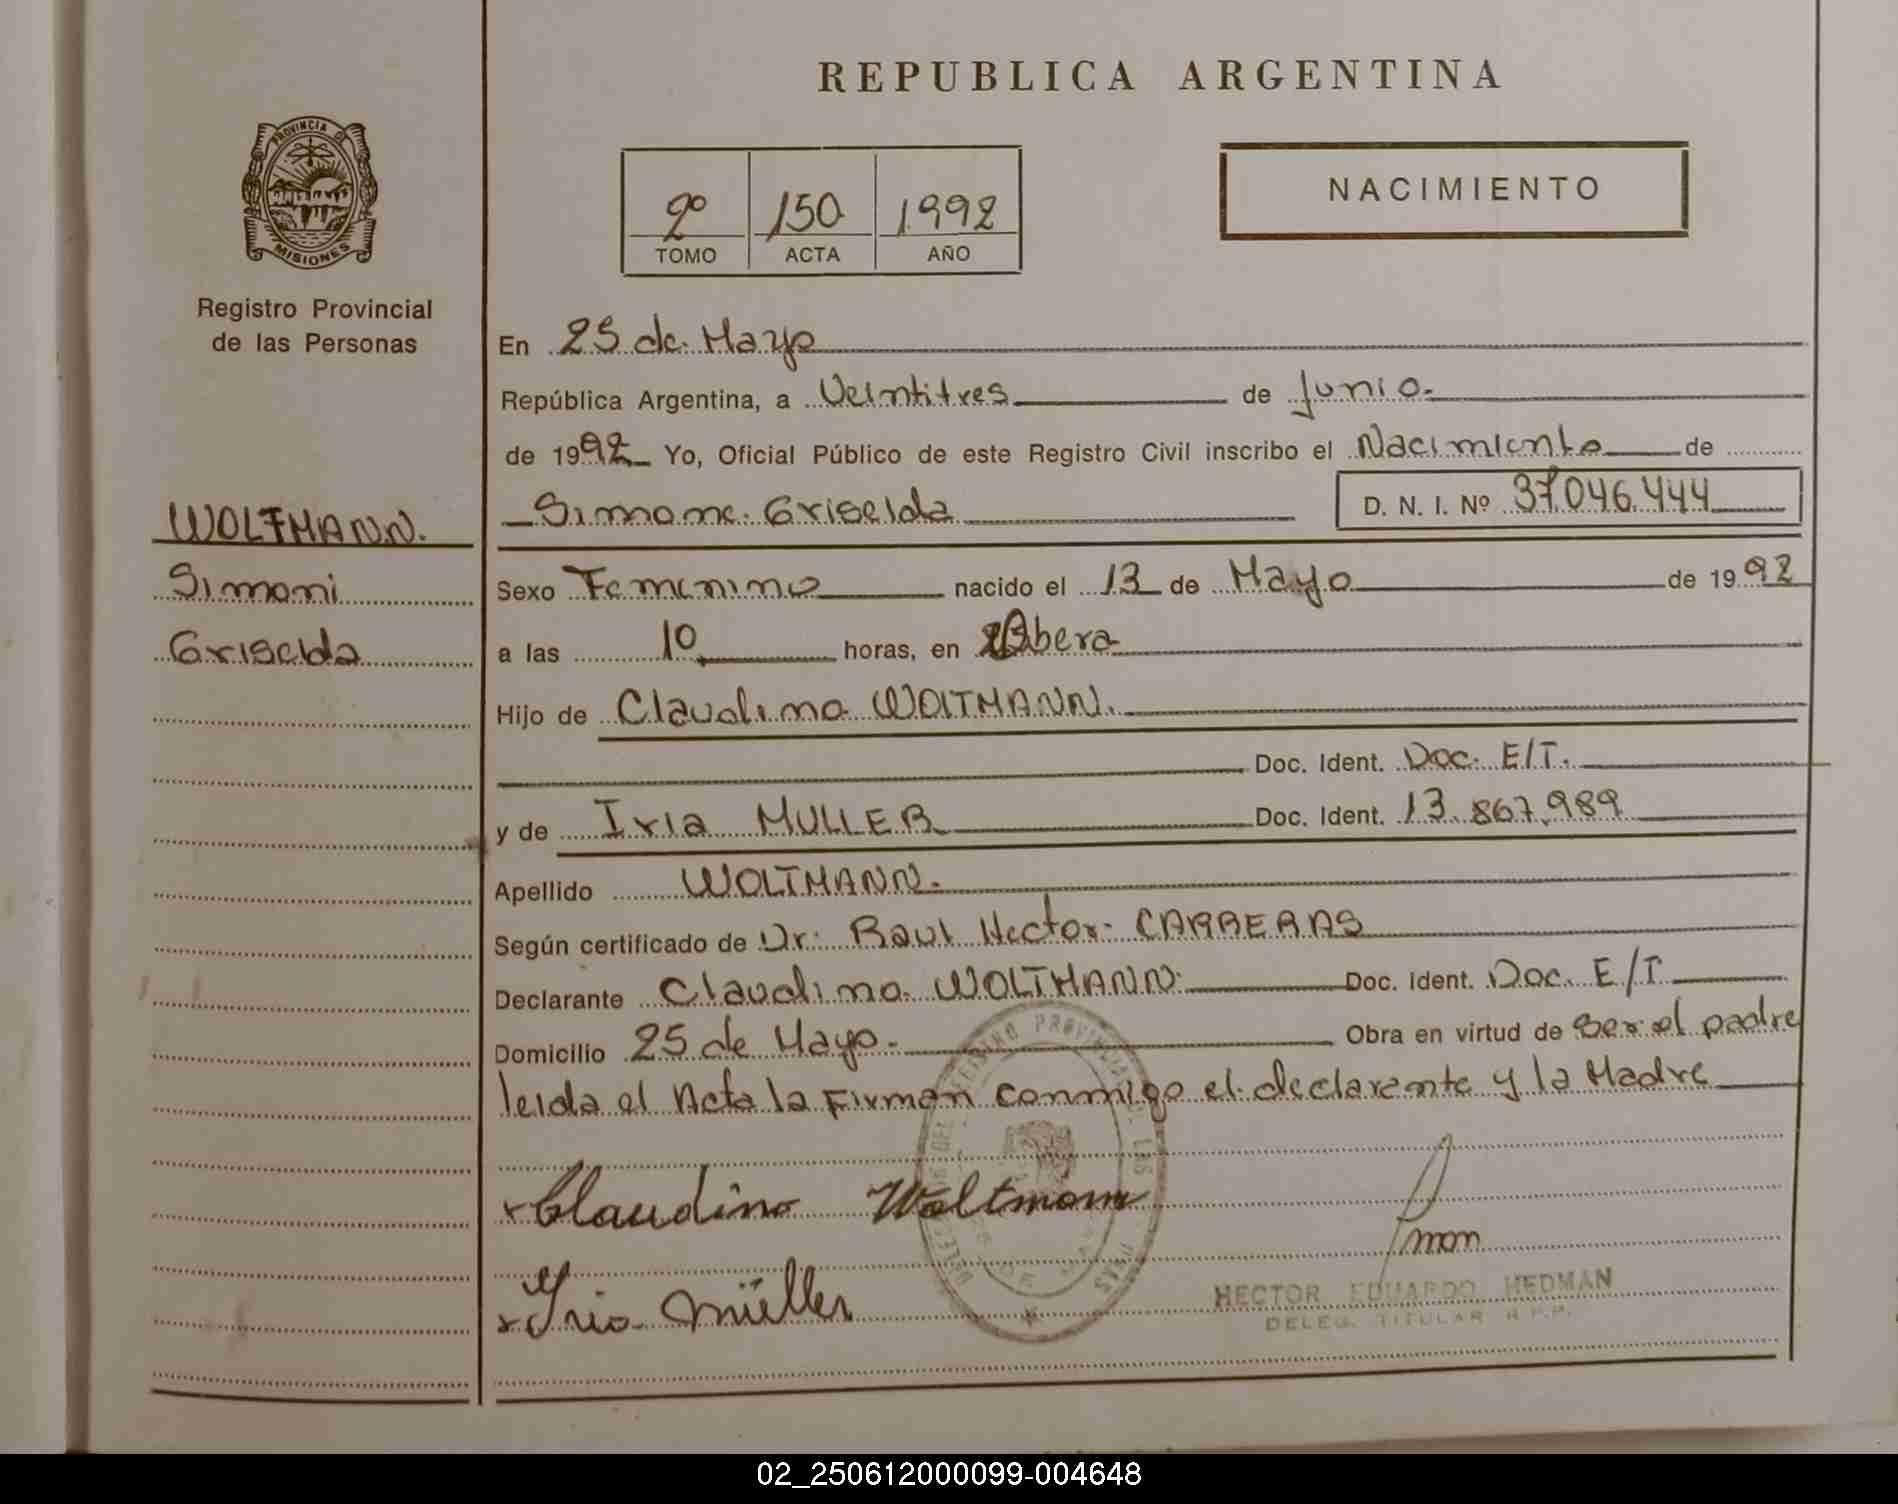 REPUBLICA ARGENTINA
PROVINCIA D
MISIONES
Registro Provincial
de las Personas
2º 150 1992
TOMO ACTA AÑO
NACIMIENTO
En 25 de Mayo
República Argentina, a Veintitres de Junio.
de 1992 Yo, Oficial Público de este Registro Civil inscribo el Nacimiento de
Simone Griselda
D. N. I. Nº 37.046.444
WOLTMANN.
Simoni
Griselda
Sexo Femenino nacido el 13 de Mayo de 1992
a las 10 horas, en Obera
Hijo de Claudino WOLTMANN.
Doc. Ident. Doc. E/T.
y de Iria MULLER Doc. Ident. 13.867.989
Apellido WOLTMANN.
Según certificado de Dr. Raul Hector CARRERAS
Declarante Claudino WOLTMANN Doc. Ident. Doc. E/T
Domicilio 25 de Mayo. Obra en virtud de Ser el padre
leida el Acta la Firman conmigo el declarante y la Madre
Claudino Woltmann
Iria Müller
HECTOR EDUARDO HEDMAN
DELEG. TITULAR R.P.P.
REGISTRO PROVINCIAL DE LAS
02_250612000099-004648